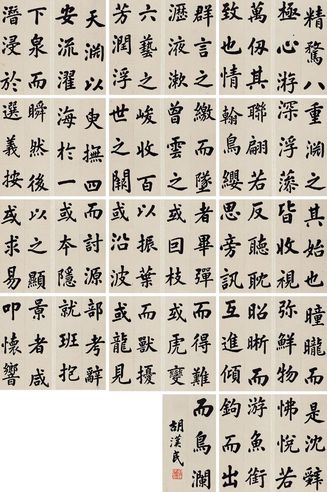 精騖八
極心游
萬仞其
致也情
群言之
瀝液漱
六藝之
芳潤浮
天淵以
安流濯
下泉而
潛浸於
重淵之
深浮藻
聯翩若
翰鳥纓
繳而墜
曾雲之
峻收百
世之闕
臾撫四
海於一
瞬然後
選義按
其始也
皆收視
反聽耽
思旁訊
者畢彈
或回枝
以振葉
或沿波
而討源
或本隱
以之顯
或求易
曈曨而
彌鮮物
昭晰而
互進傾
而得難
或虎變
而獸擾
或龍見
部考辭
就班抱
景者咸
叩懷響
是沈辭
怫悅若
游魚銜
鉤而出
而鳥瀾
胡漢民